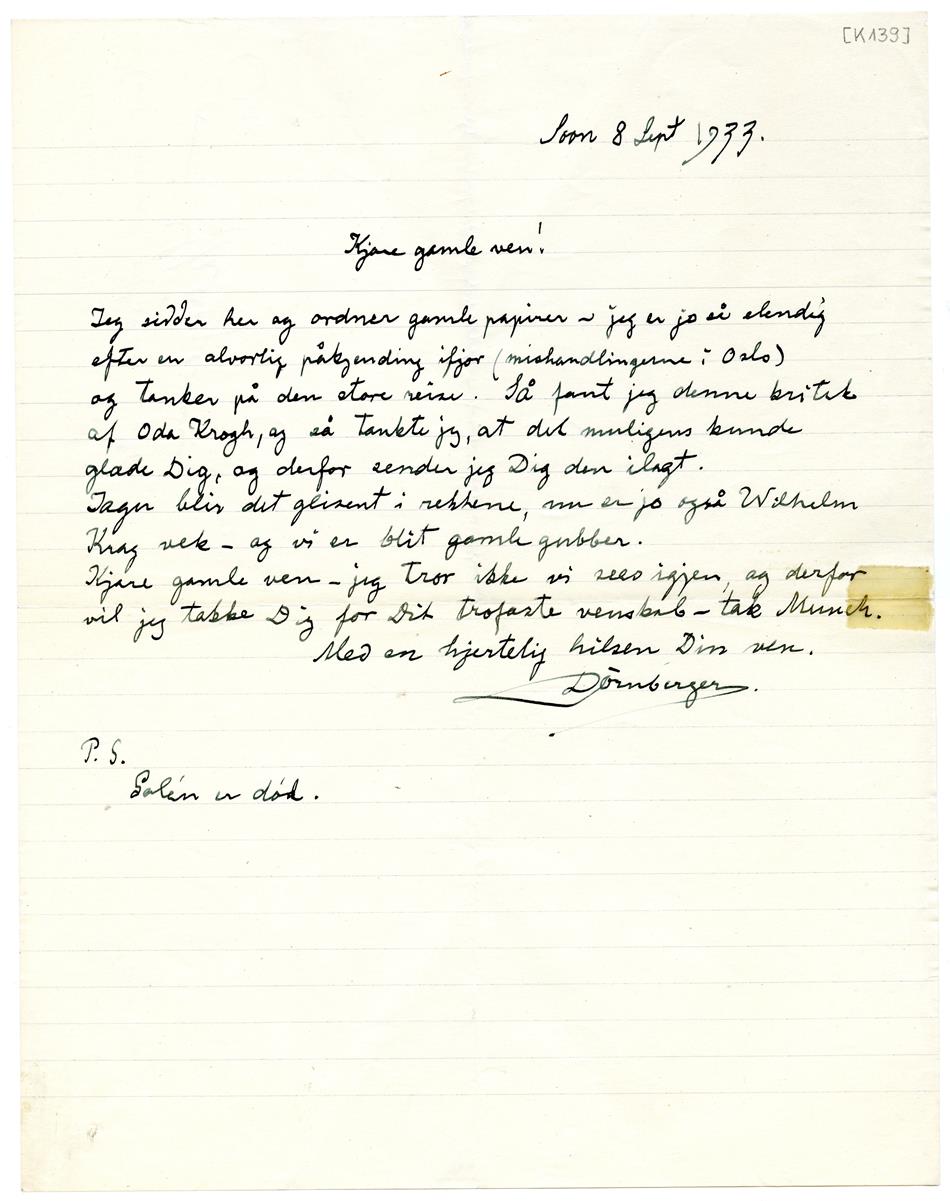 [K139]
Soon 8 Sept 1933.
Kjære gamle ven!
Jeg sidder her og ordner gamle papirer – jeg er jo så elendig
efter en alvorlig påkjending ifjor (mishandlingerne i Oslo)
og tanker på den store reise. Så fant jeg denne kritik
af Oda Krogh, og så tankte jg, at det muligens kunde
glæde Dig, og derfor sender jeg Dig den ilagt.
blir det glisent i rekkene, nu er jo også Wilhelm
Krag vek – og vi er blit gamle gubber.
Kjære gamle ven – jeg tror ikke vi sees igjen, og derfor
vil jeg takke Dig for Dit trofaste venskab – tak Munch.
Med en hjertelig hilsen Din ven.
Dörnberger.
P. S.
er död.